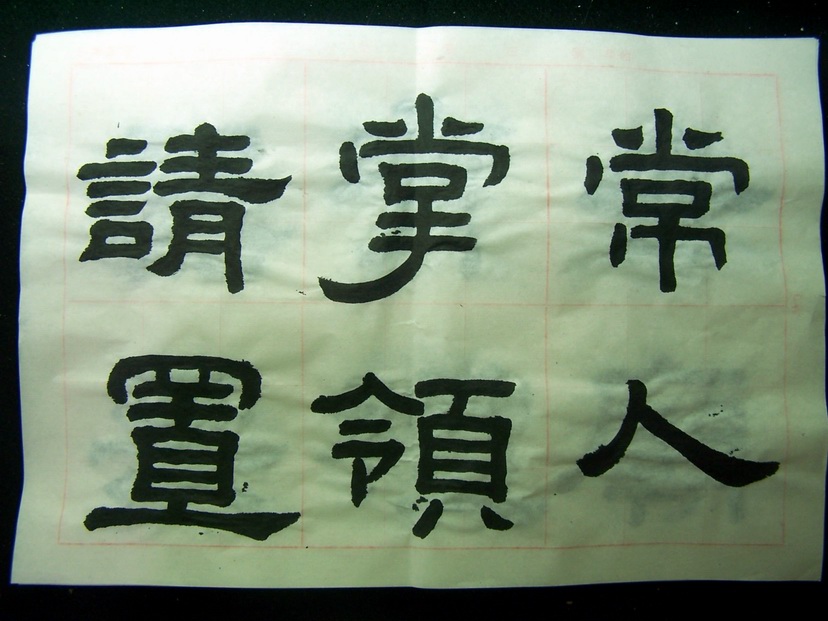 常人
掌領
請置